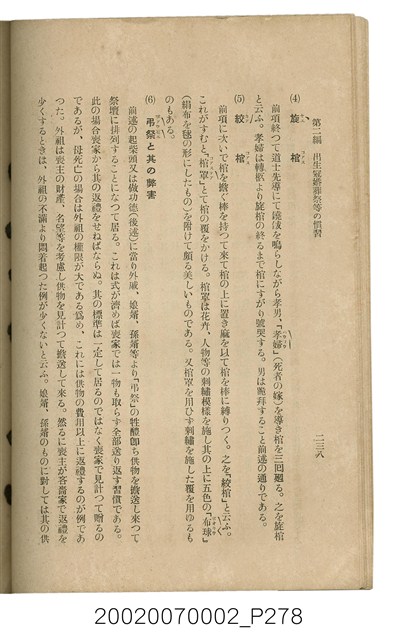 第二編　出生冠婚葬祭等の慣習
二三八
(4) 旋棺
前項終つて道士先導にて鐃鈸を鳴らしながら孝男、「孝婦」(死者の嫁)を導き棺を三囘廻る。之を旋棺
と云ふ。孝婦は轉柩より旋棺の終るまで棺にすがり號哭する。男は跪拜すること前述の通りである。
(5) 絞棺
前項に次いで棺を擔ぐ棒を持つて來て棺の上に置き麻を以て棺を棒に縛りつく。之を「絞棺」と云ふ。
これがすむと「棺罩」とて棺の覆をかける。棺罩は花卉、人物等の刺繡模樣を施し其の上に五色の「布球」
(絹布を毬の形にしたもの)を附けて頗る美しいものである。又棺罩を用ひず刺繡を施した覆を用ゆるも
のもある。
(6) 弔祭と其の弊害
前述の起柴頭又は做功德(後述)に當り外戚、娘婿、孫婿等より「弔祭」の牲醴卽ち供物を擔送し來つて
祭壇に排列することになつて居る。これは式が濟めば喪家では一物も取らず全部送り返す習慣である。
此の場合喪家から其の返禮をせねばならぬ。其の標準は一定して居るのではなく喪家で見計つて贈るの
であるが、母死亡の場合は外祖の權限が大である爲め、これには供物の費用以上に返禮するのが例であ
つた。外祖は喪主の財產、名望等を考慮し供物を見計つて擔送して來る。然るに喪主が吝嗇家で返禮を
少くするときは、外祖の不滿より悶着起つた例が少くないと云ふ。娘婿、孫婿のものに對しては其の供
20020070002_P278